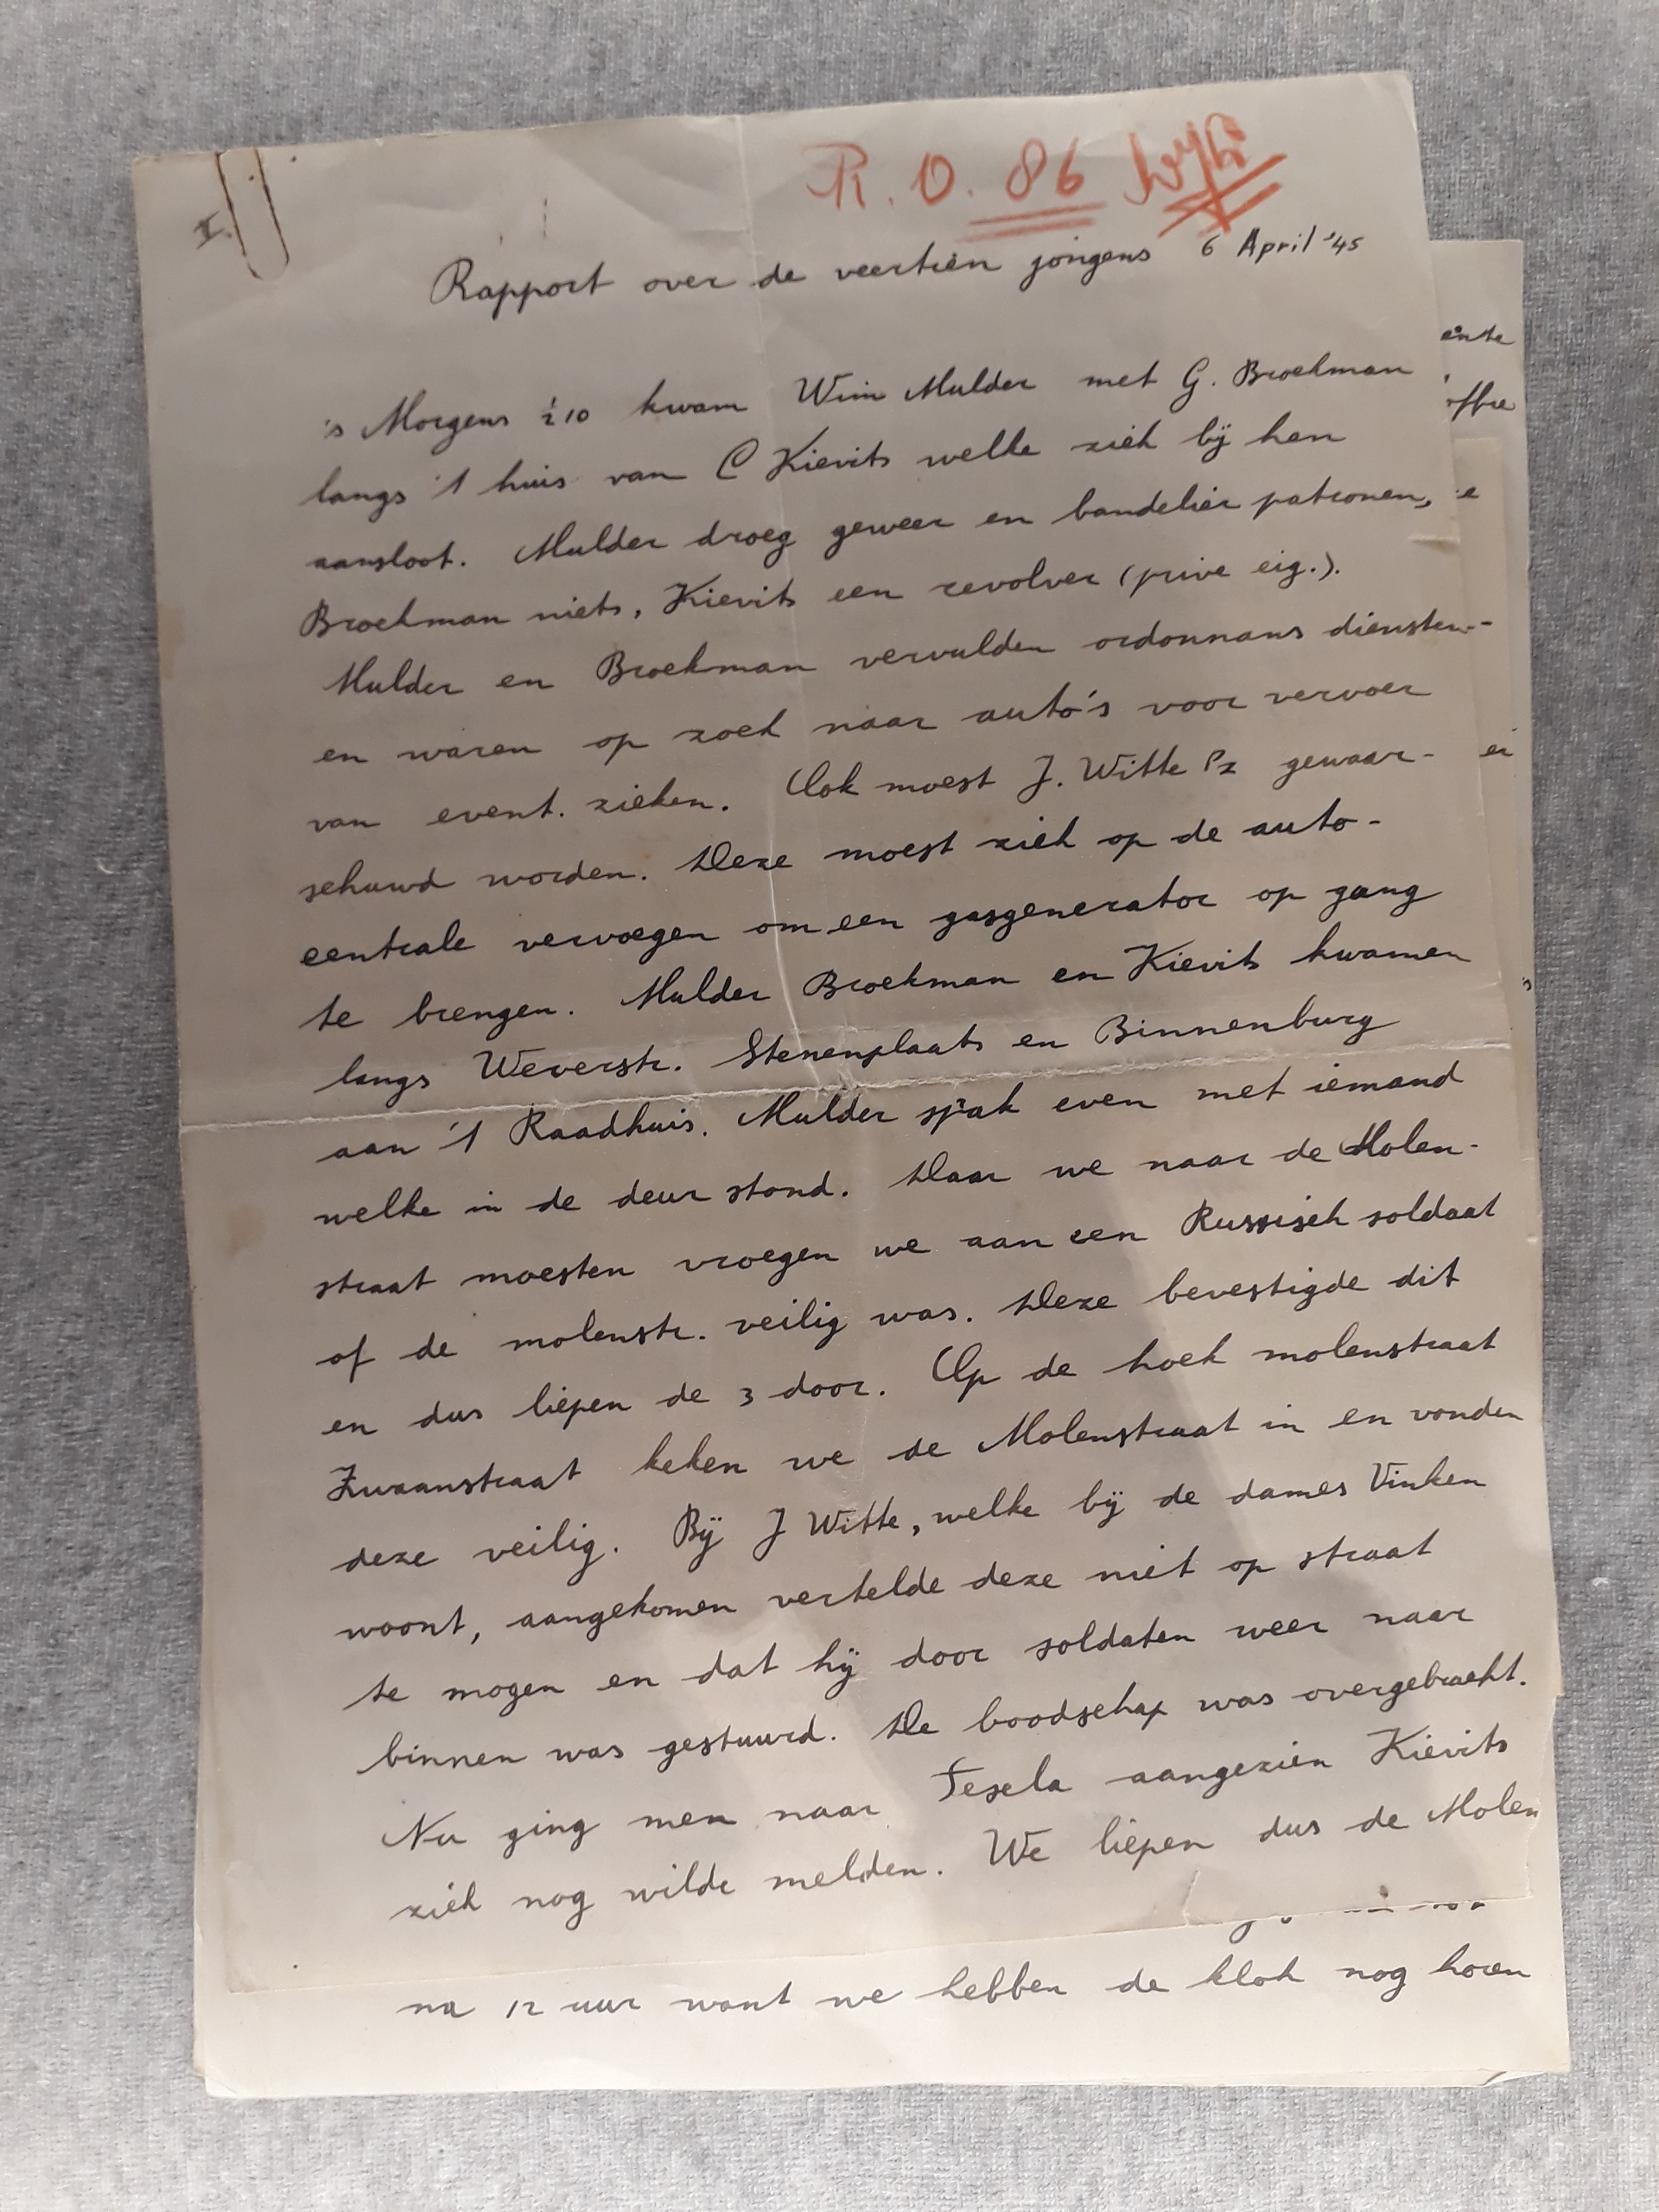 I.
R. O. 86
Rapport over de veertien jongens 6 April '45
's Morgens ½10 kwam Wim Mulder met G. Broekman
langs 't huis van C Kievits welke zich bij hen
aansloot. Mulder droeg geweer en bandelier patronen,
Broekman niets, Kievits een revolver (prive eig.).
Mulder en Broekman vervulden ordonnans diensten-
en waren op zoek naar auto's voor vervoer
van event. zieken. Ook moest J. Witte Pz gewaar-
schuwd worden. Deze moest zich op de auto-
centrale vervoegen om een gasgenerator op gang
te brengen. Mulder Broekman en Kievits kwamen
langs Weverstr. Stenenplaats en Binnenburg
aan 't Raadhuis. Mulder sprak even met iemand
welke in de deur stond. Daar we naar de Molen-
straat moesten vroegen we aan een Russisch soldaat
of de molenstr. veilig was. Deze bevestigde dit
en dus liepen de 3 door. Op de hoek molenstraat
Zwaanstraat keken we de Molenstraat in en vonden
deze veilig. Bij J Witte, welke bij de dames Vinken
woont, aangekomen vertelde deze niet op straat
te mogen en dat hij door soldaten weer naar
binnen was gestuurd. De boodschap was overgebracht.
Nu ging men naar Tesela aangezien Kievits
zich nog wilde melden. We liepen dus de Molen
na 12 uur want we hebben de klok nog horen